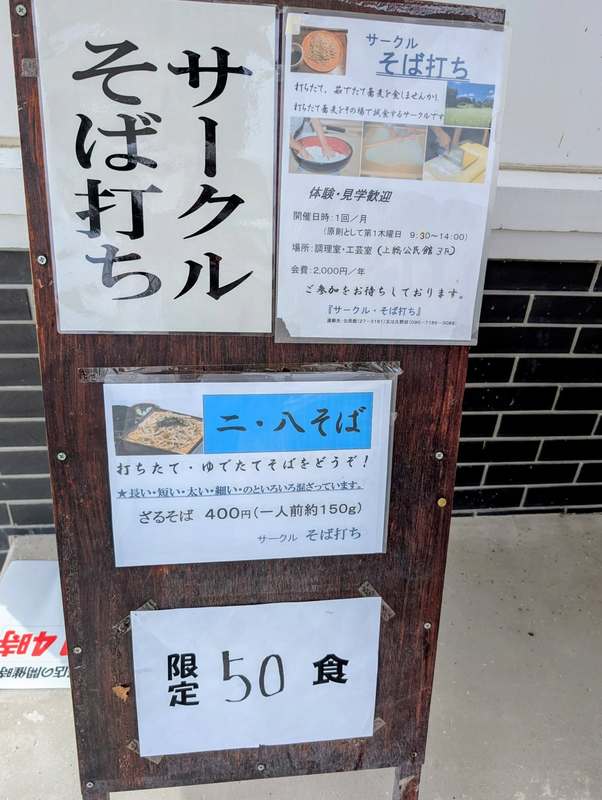 サークル
そば打ち
サークル
そば打ち
打ちたて、茹でたて蕎麦を食しませんか!
打ちたて蕎麦をその場で試食するサークルです
体験・見学歓迎
開催日時:1回/月
(原則として第1木曜日 9:30~14:00)
場所:調理室・工芸室(上鶴公民館3F)
会費:2,000円/年
ご参加をお待ちしております。
『サークル・そば打ち』
二・八そば
打ちたて・ゆでたてそばをどうぞ!
★長い・短い・太い・細い・のといろいろ混ざっています。
ざるそば 400円(一人前約150g)
サークル そば打ち
限定 50 食
14時
店の開催時